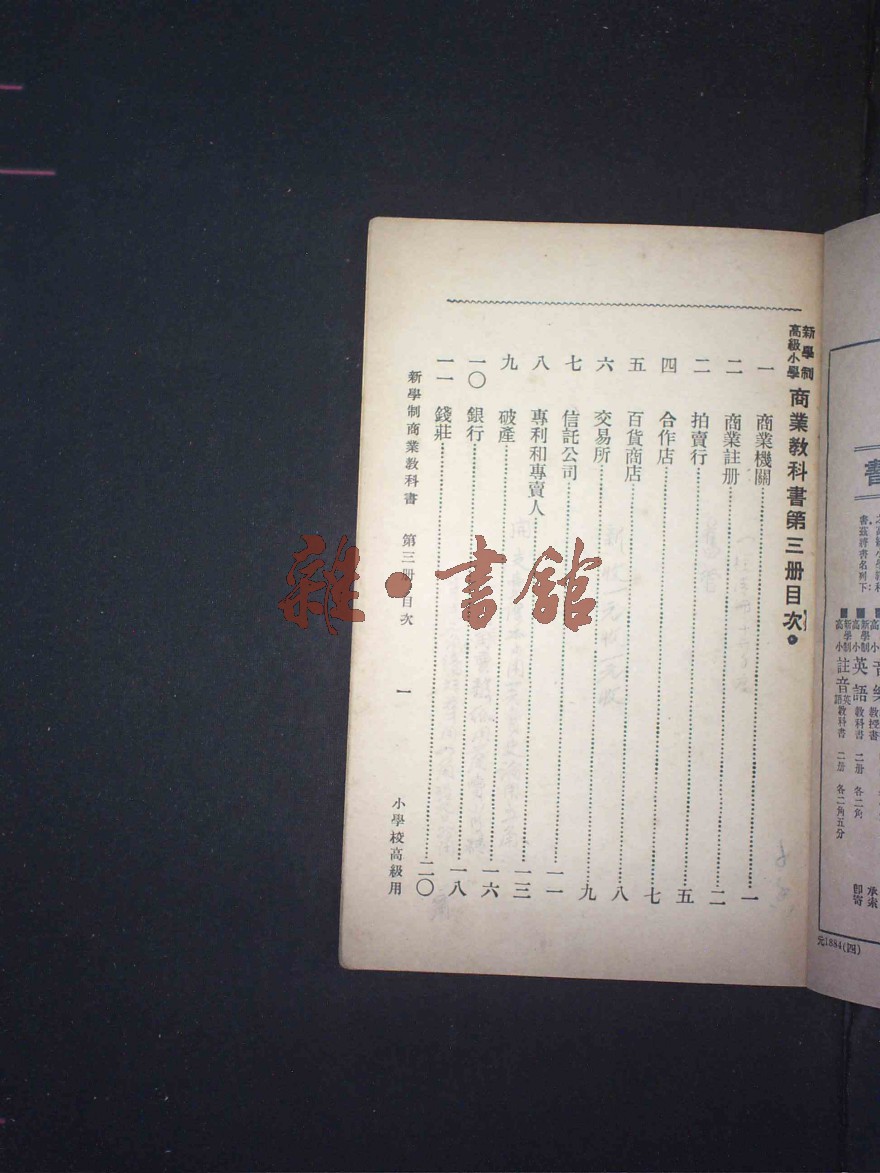 書
書茲將書名列下：
新學制高小英語教科書 二册 各二角
新學制高小註音英語教科書 二册 各二角五分
承索
卽寄
元1884(四)
新學制高級小學 商業教科書第三册目次
一 商業機關……一
二 商業註册……二
三 拍賣行……五
四 合作店……七
五 百貨商店……八
六 交易所……九
七 信託公司……一一
八 專利和專賣人……一三
九 破產……一六
一〇 銀行……一八
一一 錢莊……二〇
新學制商業教科書 第三册 目次 一 小學校高級用
雜·書館